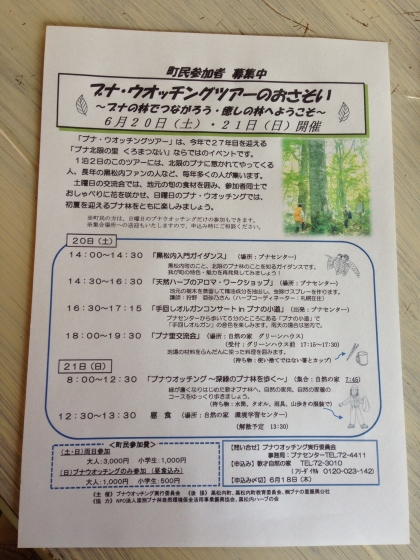 町民参加者 募集中
ブナ・ウオッチングツアーのおさそい
～ブナの林でつながろう・癒しの林へようこそ～
6月20日（土）・21日（日）開催
「ブナ・ウオッチングツアー」は、今年で27年目を迎える
「ブナ北限の里 くろまつない」ならではのイベントです。
1泊2日のこのツアーには、北限のブナに惹かれてやってくる
人、長年の黒松内ファンの人など、毎年多くの人が集います。
土曜日の交流会では、地元の旬の食材を囲み、参加者同士で
おしゃべりに花を咲かせ、日曜日のブナ・ウオッチングでは、
初夏を迎えるブナ林をともに楽しみましょう。
※町民の方は、日曜日のブナウオッチングだけの参加もできます。
20日（土）
14:00～14:30 「黒松内入門ガイダンス」（場所：ブナセンター）
黒松内町のこと、北限のブナ林のことを知るガイダンスです。
我が町の特色・魅力を再発見してみましょう！
14:30～16:30 「天然ハーブのアロマ・ワークショップ」（場所：ブナセンター）
16:30～17:15 「手回しオルガンコンサート in ブナの小道」（出発：ブナセンター）
ブナセンターから歩いて5分のところにある「ブナの小道」で
「手回しオルガン」の音色を楽しみます。雨天の場合は室内で。
18:00～19:30 「ブナ里交流会」（場所：自然の家 グリーンハウス）
（受付：グリーンハウス前 17:15～17:30）
地場の材料をふんだんに使った料理を囲みます。
（持ち物：使い捨てではない箸とカップ）
21日（日）
8:00～12:30 「ブナウオッチング～深緑のブナ林を歩く～」（集合：自然の家 7:45）
コースをゆっくり歩きましょう。
（持ち物：水筒、タオル、雨具、山歩きの服装で）
12:30～13:30 昼 食 （場所：自然の家 環境学習センター）
（解散予定 13:30）
＜町民参加費＞
（土・日）両日参加
大人：3,000円 小学生：1,000円
（日）ブナウオッチングのみ参加（昼食込み）
大人：1,000円 小学生：500円
【問い合せ】ブナウオッチング実行委員会
事務局：ブナセンターTEL：72-4411
【申込み】歌才自然の家 TEL：72-3010
（フリーダイヤル 0120-023-142）
【申込み〆切】6月18日（木）
《主 催》ブナウオッチング実行委員会 《後 援》黒松内町、黒松内町教育委員会、㈱ブナの里振興公社
《協 力》NPO法人黒松内ぶなの森自然学校、黒松内ハーブの会